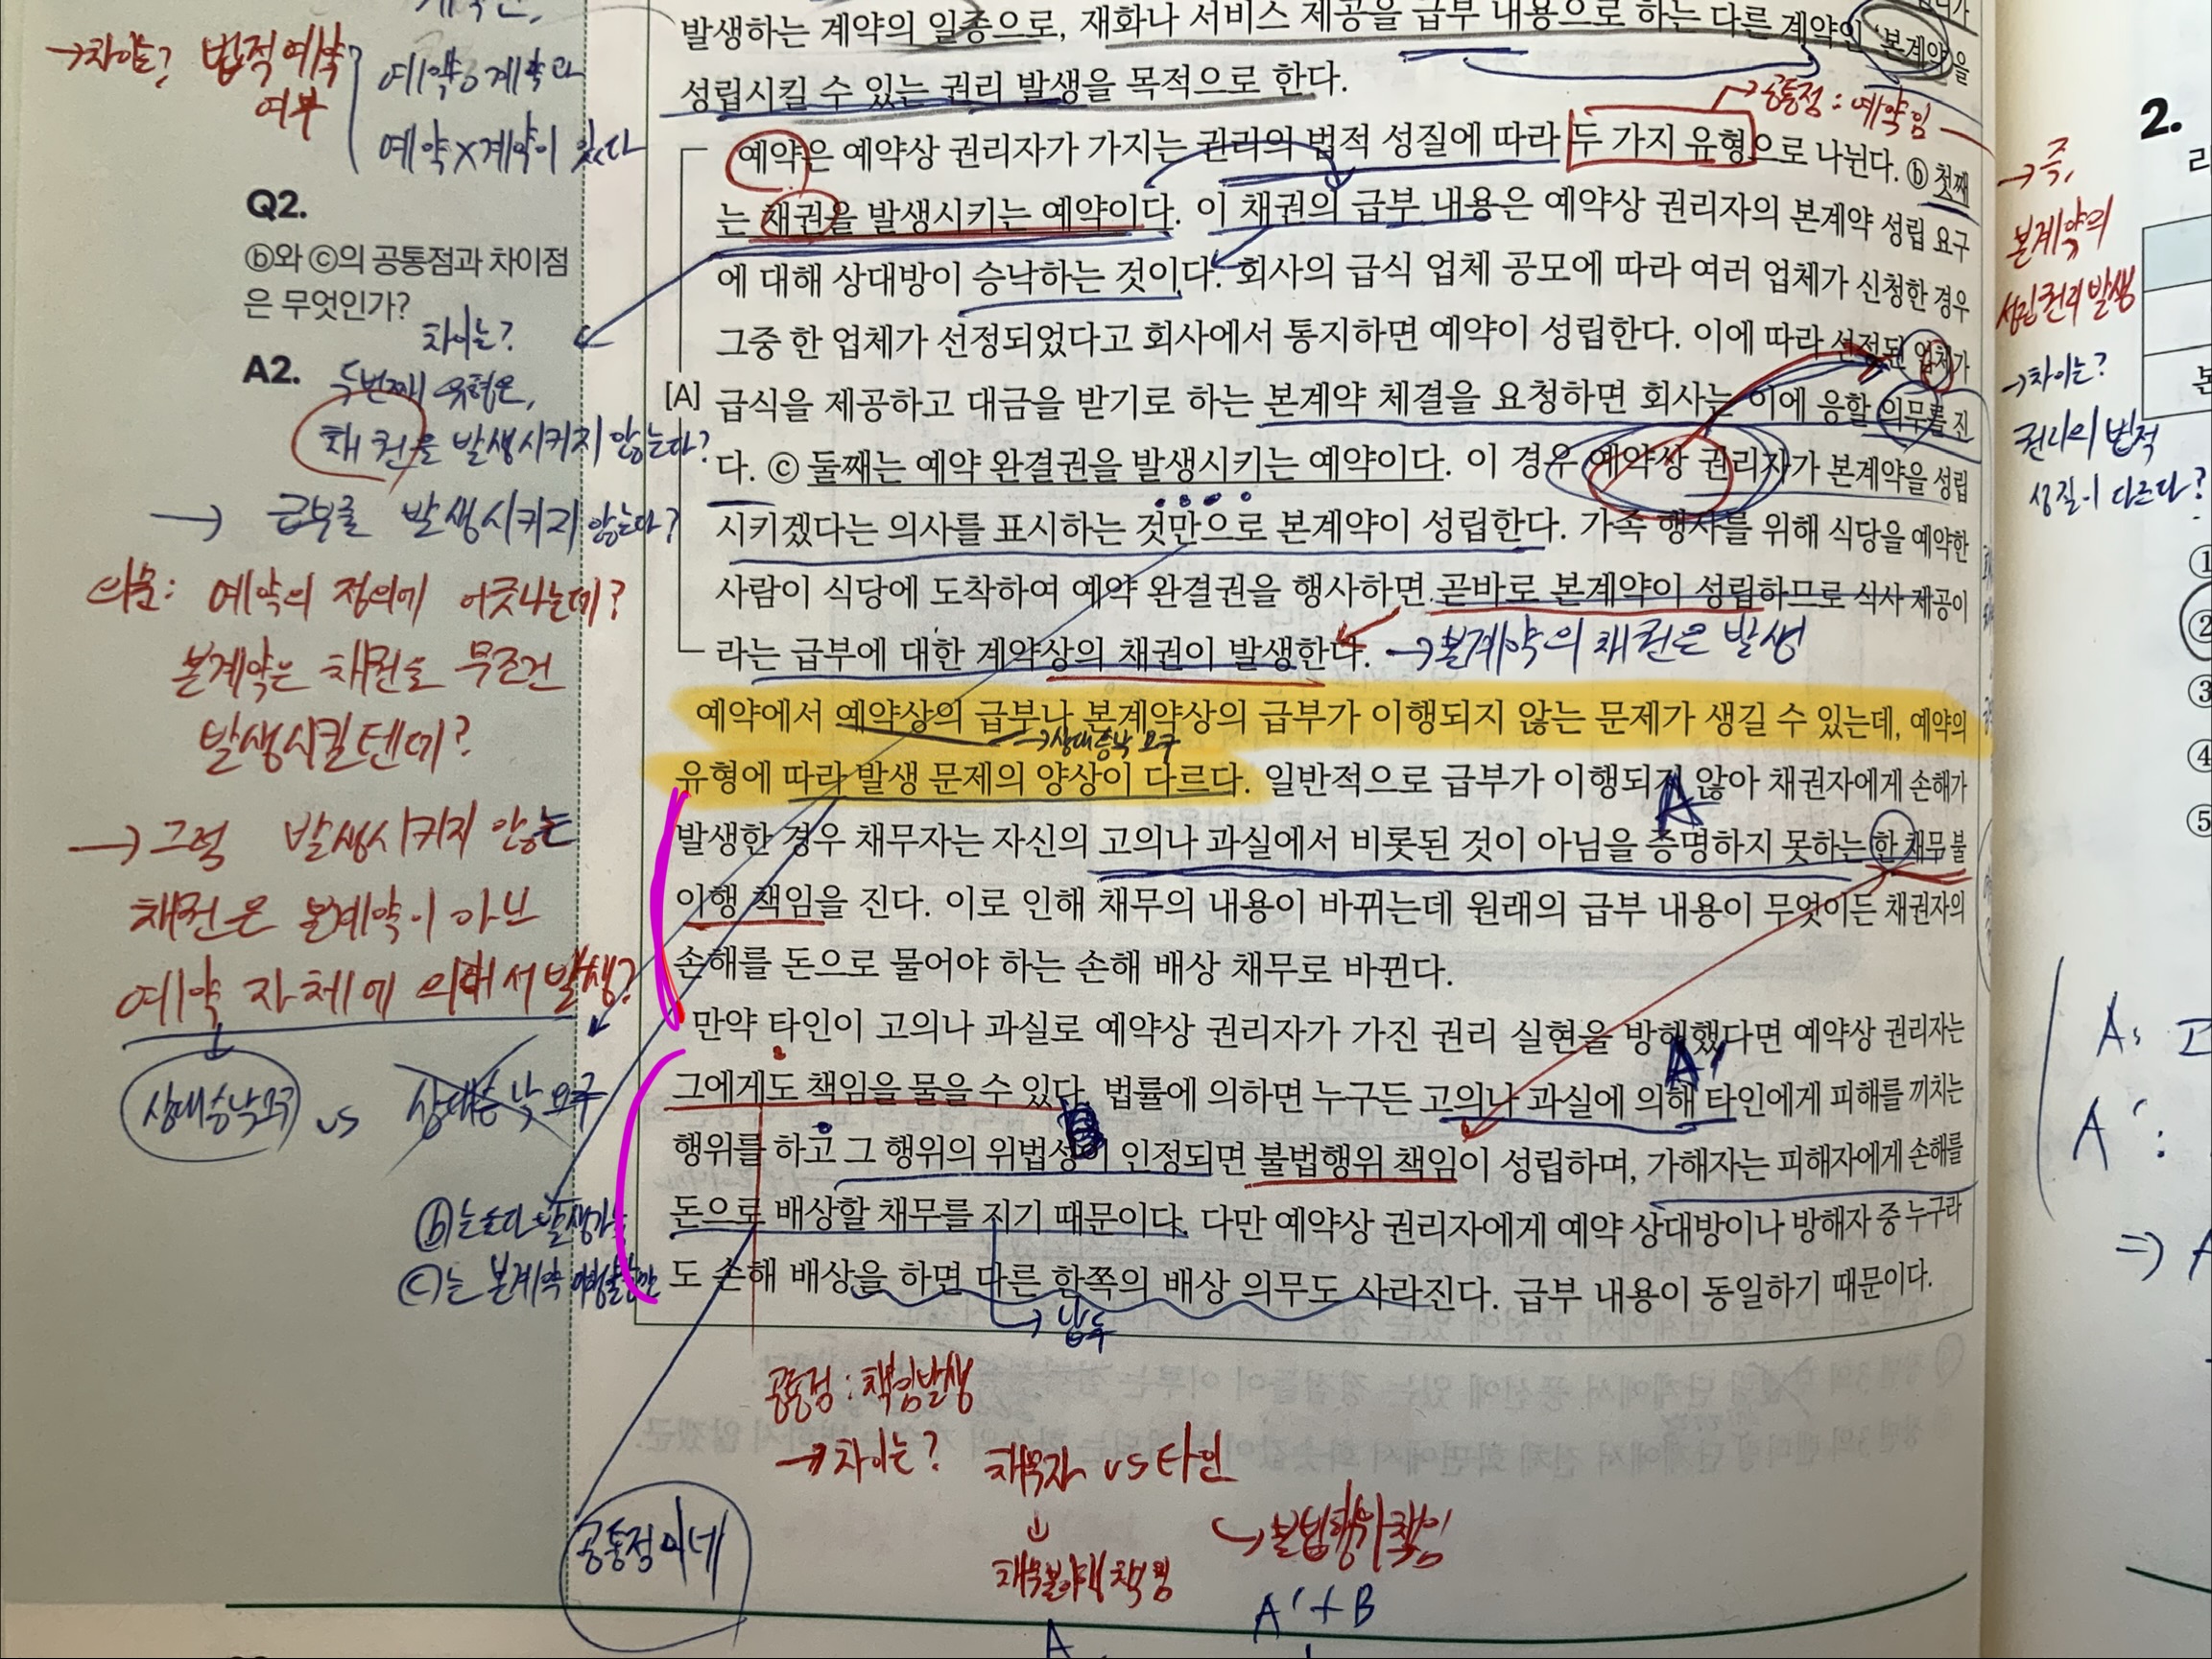 발생하는 계약의 일종으로, 재화나 서비스 제공을 급부 내용으로 하는 다른 계약인 '본계약'을
성립시킬 수 있는 권리 발생을 목적으로 한다.
→공통점 : 예약임
예약은 예약상 권리자가 가지는 권리의 법적 성질에 따라 두 가지 유형으로 나뉜다. ⓑ 첫째
는 채권을 발생시키는 예약이다. 이 채권의 급부 내용은 예약상 권리자의 본계약 성립 요구
에 대해 상대방이 승낙하는 것이다. 회사의 급식 업체 공모에 따라 여러 업체가 신청한 경우
그중 한 업체가 선정되었다고 회사에서 통지하면 예약이 성립한다. 이에 따라 선정된 업체가
[A] 급식을 제공하고 대금을 받기로 하는 본계약 체결을 요청하면 회사는 이에 응할 의무를 진
다. ⓒ 둘째는 예약 완결권을 발생시키는 예약이다. 이 경우 예약상 권리자가 본계약을 성립
시키겠다는 의사를 표시하는 것만으로 본계약이 성립한다. 가족 행사를 위해 식당을 예약한
사람이 식당에 도착하여 예약 완결권을 행사하면 곧바로 본계약이 성립하므로 식사 제공이
라는 급부에 대한 계약상의 채권이 발생한다. →본계약의 채권은 발생
예약에서 예약상의 급부나 본계약상의 급부가 이행되지 않는 문제가 생길 수 있는데, 예약의
→상대승낙 요구
유형에 따라 발생 문제의 양상이 다르다. 일반적으로 급부가 이행되지 않아 채권자에게 손해가
A
발생한 경우 채무자는 자신의 고의나 과실에서 비롯된 것이 아님을 증명하지 못하는 한 채무 불
이행 책임을 진다. 이로 인해 채무의 내용이 바뀌는데 원래의 급부 내용이 무엇이든 채권자의
손해를 돈으로 물어야 하는 손해 배상 채무로 바뀐다.
만약 타인이 고의나 과실로 예약상 권리자가 가진 권리 실현을 방해했다면 예약상 권리자는
A'
그에게도 책임을 물을 수 있다. 법률에 의하면 누구든 고의나 과실에 의해 타인에게 피해를 끼치는
B
행위를 하고 그 행위의 위법성이 인정되면 불법행위 책임이 성립하며, 가해자는 피해자에게 손해를
돈으로 배상할 채무를 지기 때문이다. 다만 예약상 권리자에게 예약 상대방이나 방해자 중 누구라
도 손해 배상을 하면 다른 한쪽의 배상 의무도 사라진다. 급부 내용이 동일하기 때문이다.
공통점 : 책임발생
→차이는? 채무자 vs 타인
↓
채무불이행 책임
↳불법행위 책임
A
A'+B
공통점이네
→차이는? 법적예약
여부
예약o계약과
예약x계약이 있다
Q2.
ⓑ와 ⓒ의 공통점과 차이점
은 무엇인가?
차이는?
A2. 두번째 유형은,
채권을 발생시키지 않는다?
→ 급부를 발생시키지 않는다?
의문: 예약의 정의에 어긋나는데?
본계약은 채권을 무조건
발생시킬텐데?
→그럼 발생시키지 않는
채권은 본계약이 아닌
예약 자체에 의해서 발생?
상대승낙요구 vs 상대승낙요구
ⓑ는 둘다 발생가능
ⓒ는 본계약
→즉,
본계약의
성립권리 발생
→차이는?
권리의 법적
성질이 다르다?
2.
리
본
①
②
③
④
⑤
A:
A':
⇒ A